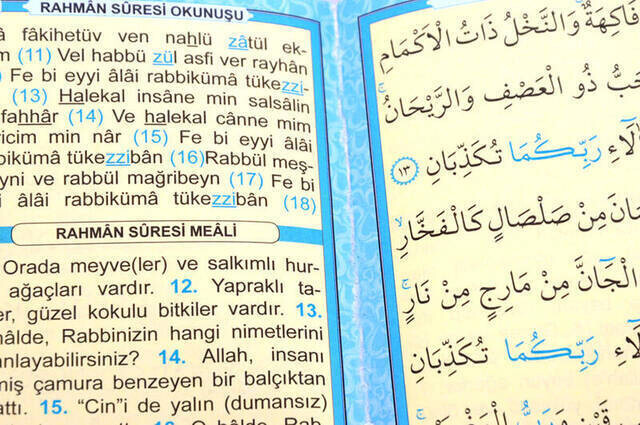 RAHMÂN SÛRESİ OKUNUŞU
fâkihetüv ven nahlü zâtül ek-
(11) Vel habbü zül asfi ver rayhân
Fe bi eyyi âlâi rabbikümâ tükezzi-
(13) Halekal insâne min salsâlin
fahhâr (14) Ve halekal cânne mim
ricim min nâr (15) Fe bi eyyi âlâi
bikümâ tükezzibân (16)Rabbül meş-
yni ve rabbül mağribeyn (17) Fe bi
âlâi rabbikümâ tükezzibân (18)
RAHMÂN SÛRESİ MEÂLİ
Orada meyve(ler) ve salkımlı hur-
ağaçları vardır. 12. Yapraklı ta-
er, güzel kokulu bitkiler vardır. 13.
hâlde, Rabbinizin hangi nimetlerini
anlayabilirsiniz? 14. Allah, insanı
miş çamura benzeyen bir balçıktan
attı. 15. "Cin"i de yalın (dumansız)
فَاكِهَةٌ وَالنَّخْلُ ذَاتُ الْاَكْمَامِ
حَبُّ ذُو الْعَصْفِ وَالرَّيْحَانُ
اٰلَٓاءِ رَبِّكُمَا تُكَذِّبَانِ ١٣
مِنْ صَلْصَالٍ كَالْفَخَّارِ
الْجَٓانَّ مِنْ مَارِجٍ مِنْ نَارٍ
اٰلَٓاءِ رَبِّكُمَا تُكَذِّبَانِ